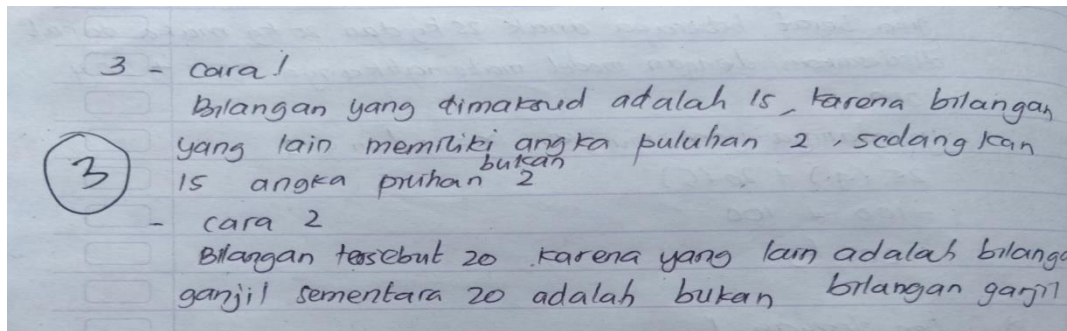 3 - cara 1
Bilangan yang dimaksud adalah 15, karena bilangan
yang lain memiliki angka puluhan 2, sedangkan
3
15 angka puluhan bukan 2
- cara 2
Bilangan tersebut 20 karena yang lain adalah bilanga
ganjil sementara 20 adalah bukan bilangan ganjil